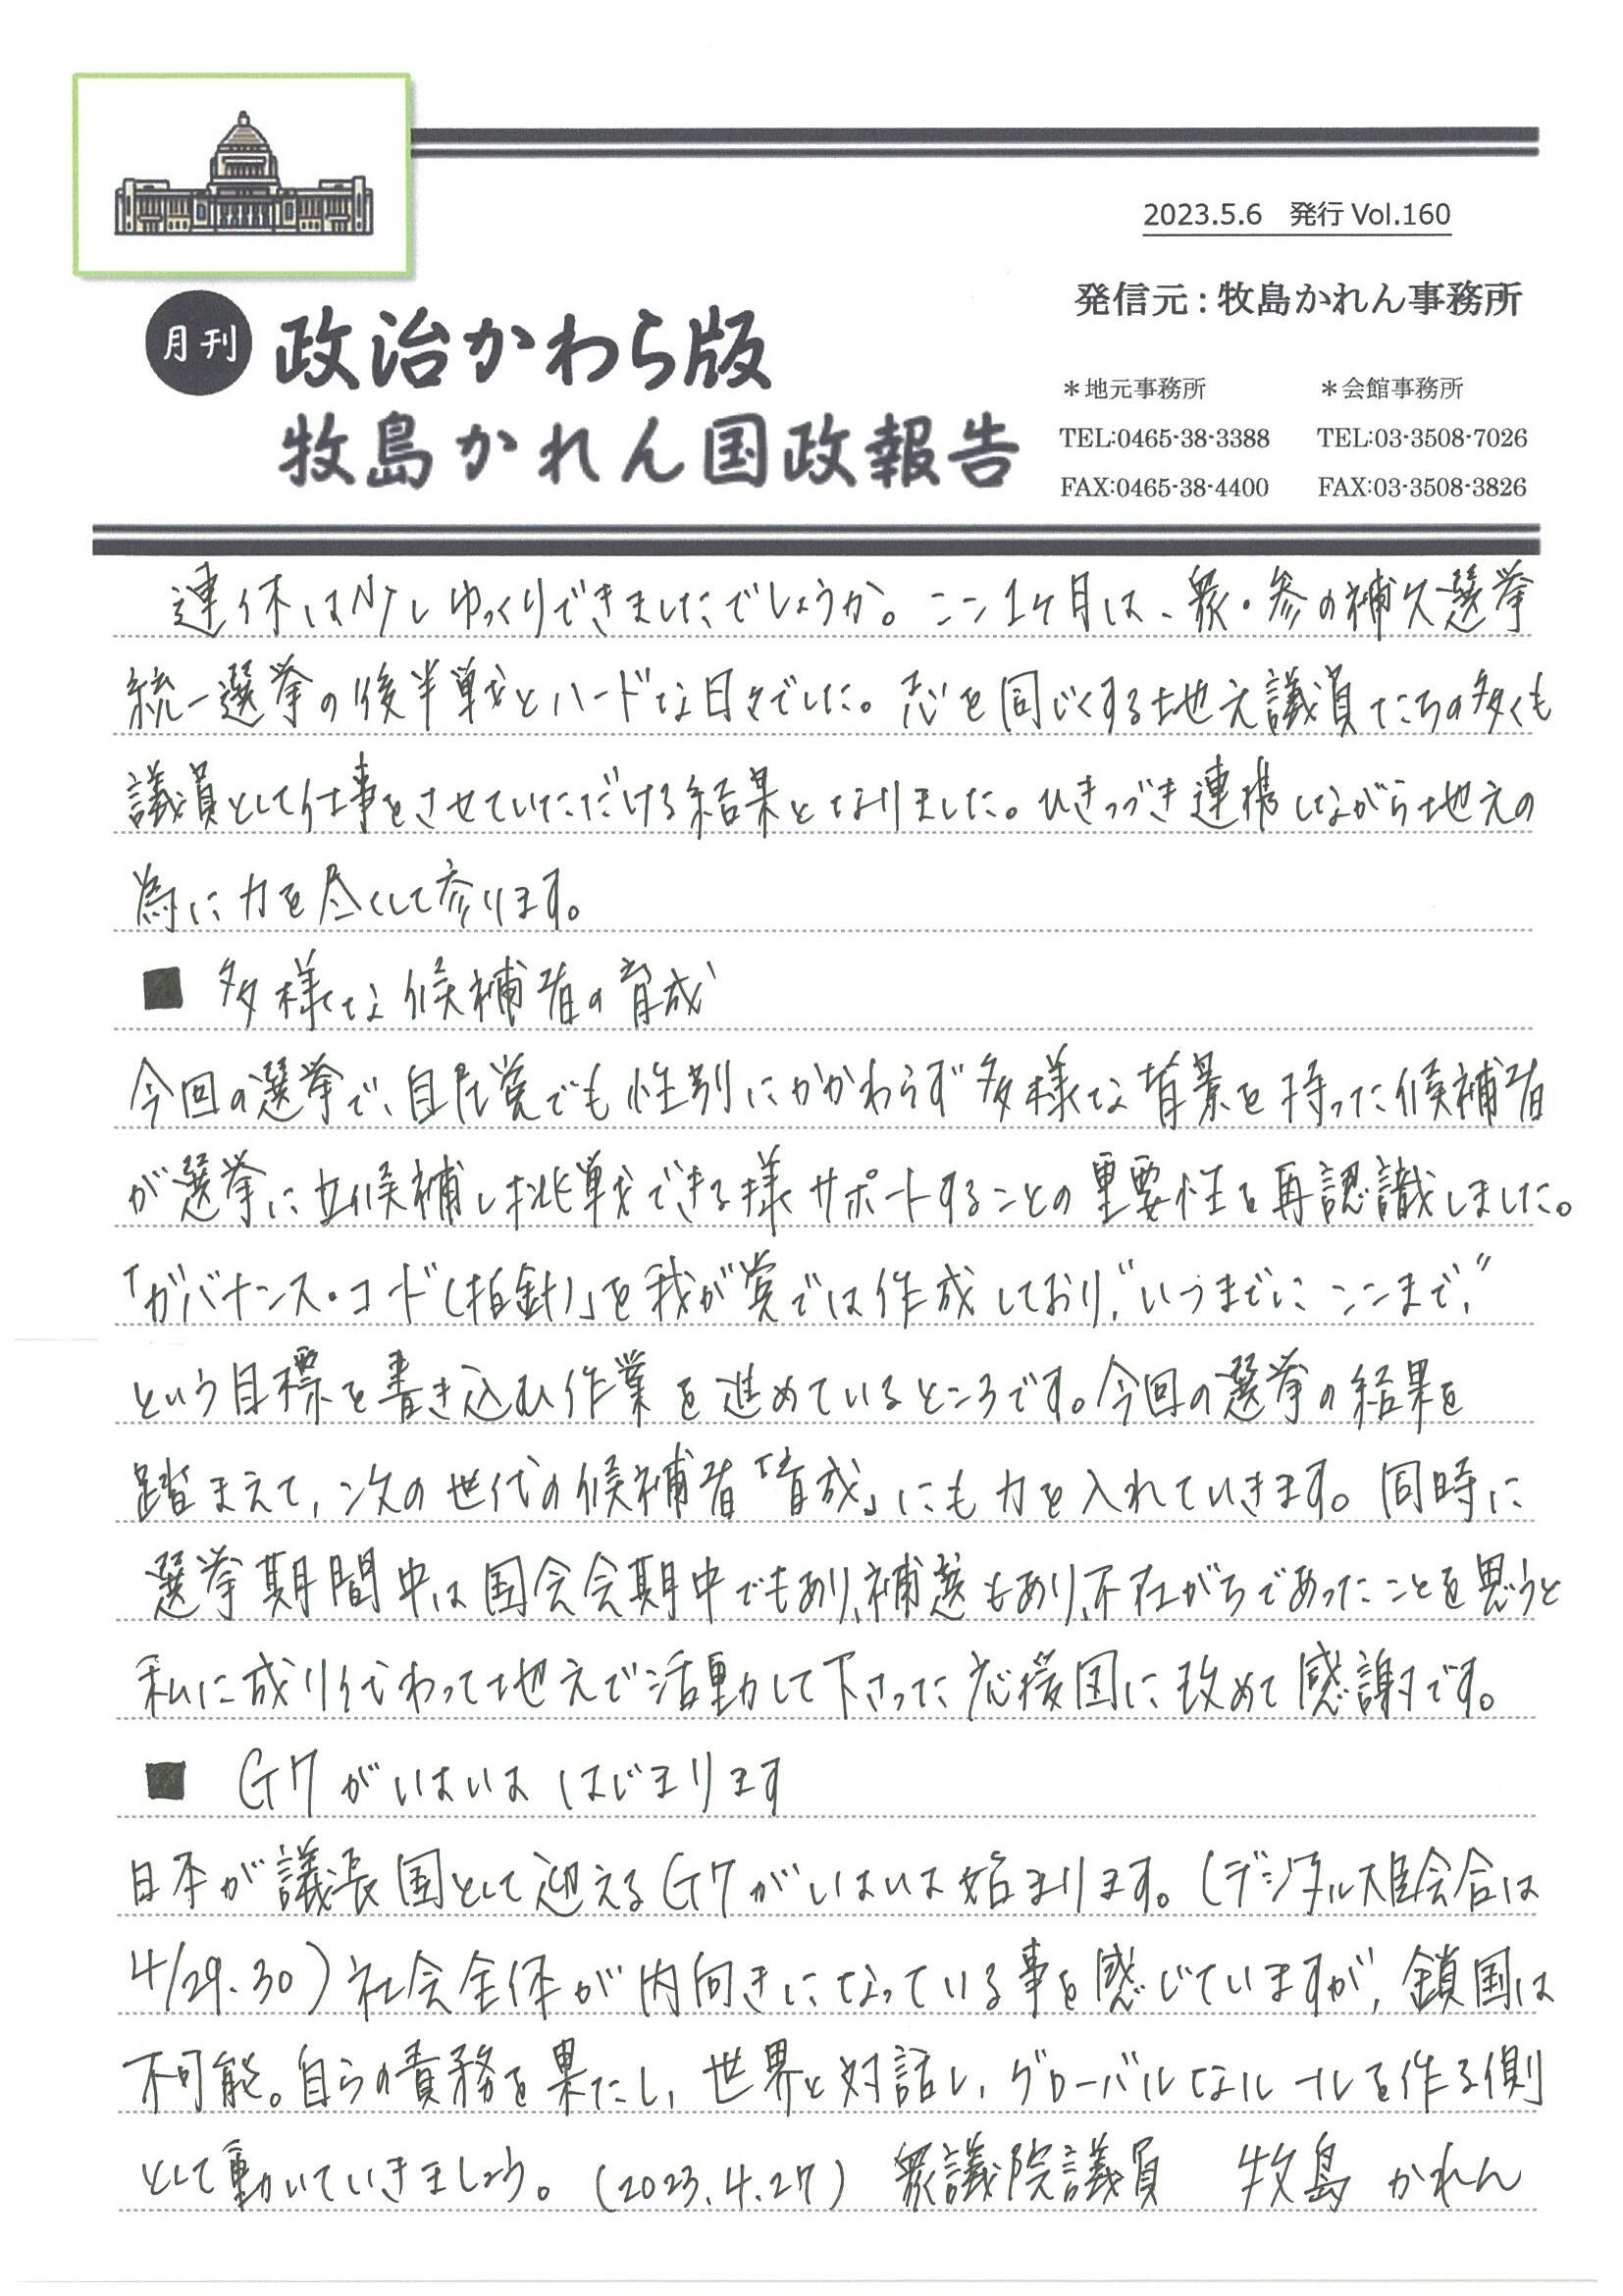 2023.5.6　発行 Vol.160
発信元 : 牧島かれん事務所
月刊 政治かわら版
牧島かれん国政報告
＊地元事務所　＊会館事務所
TEL:0465-38-3388　TEL:03-3508-7026
FAX:0465-38-4400　FAX:03-3508-3826
連休は少しゆっくりできましたでしょうか。ここ1ヶ月は、衆・参の補欠選挙
統一選挙の後半戦とハードな日々でした。志を同じくする地元議員たちの多くも
議員として仕事をさせていただける結果となりました。ひきつづき連携しながら地元の
為に力を尽くして参ります。
■ 多様な候補者の育成
今回の選挙で、自民党でも性別にかかわらず多様な背景を持った候補者
が選挙に立候補し挑戦できる様サポートすることの重要性を再認識しました。
「ガバナンス・コード(指針)」を我が党では作成しており、“いつまでに ここまで”
という目標を書き込む作業を進めているところです。今回の選挙の結果を
踏まえて、次の世代の候補者「育成」にも力を入れていきます。同時に
選挙期間中は国会会期中でもあり、補選もあり、不在がちであったことを思うと
私に成り代わって地元で活動して下さった応援団に改めて感謝です。
■ G7がいよいよ はじまります
日本が議長国として迎えるG7がいよいよ始まります。(デジタル大臣会合は
4/29.30)社会全体が内向きになっている事を感じていますが、鎖国は
不可能。自らの責務を果たし、世界と対話し、グローバルなルールを作る側
として動いていきましょう。(2023.4.27) 衆議院議員　牧島 かれん